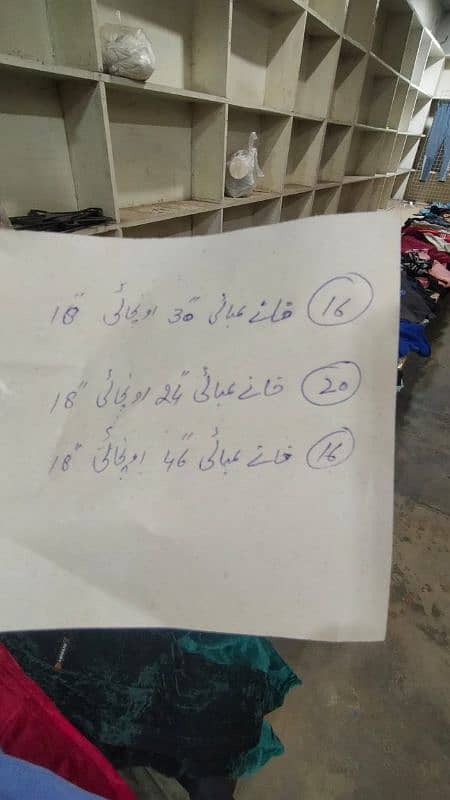 16 خانے لمبائی "30 اونچائی "18
20 خانے لمبائی "24 اونچائی "18
16 خانے لمبائی "46 اونچائی "18